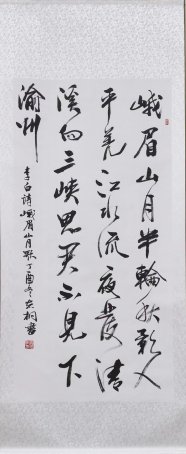 峨眉山月半轮秋影入
平羌江水流夜发清
溪向三峡思君不见下
渝州
李白诗峨眉山月歌丁酉冬 桐书